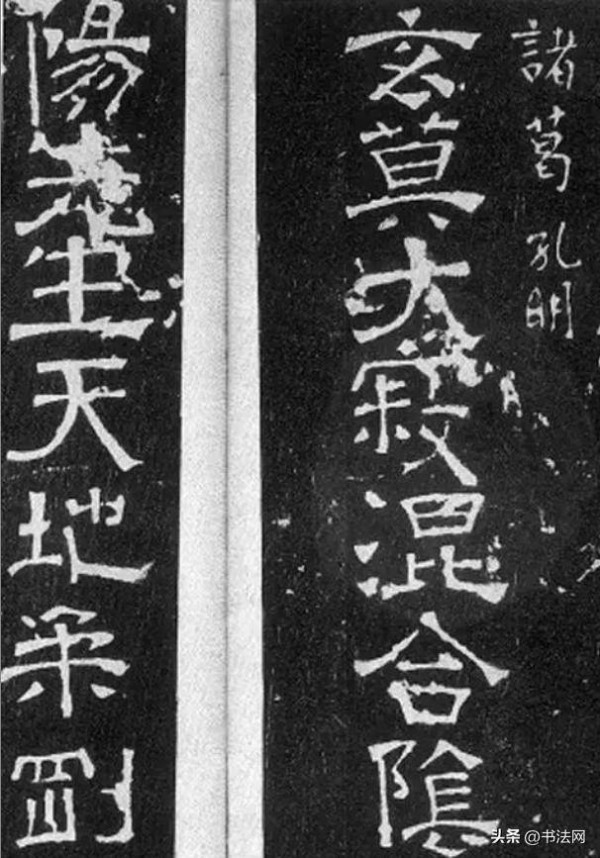 諸葛孔明
玄莫大寂混合陰
陽先生天地柔剛
头条 @书法网